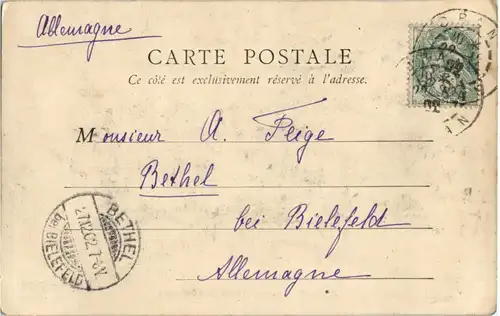 Allemagne
CARTE POSTALE
Ce côté est exclusivement réservé à l'adresse.
Monsieur A. Feige
Bethel
bei Bielefeld
Allemagne
BETHEL
bei BIELEFELD